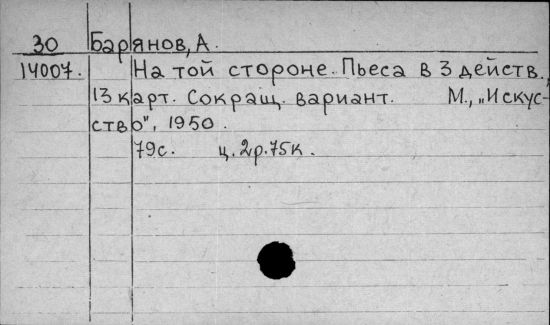 30 Барянов, А.
14007. На той стороне. Пьеса в 3 действ.,
13 карт. Сокращ. вариант. М., „Искус-
ство", 1950.
79с. ц. 2р. 75к.